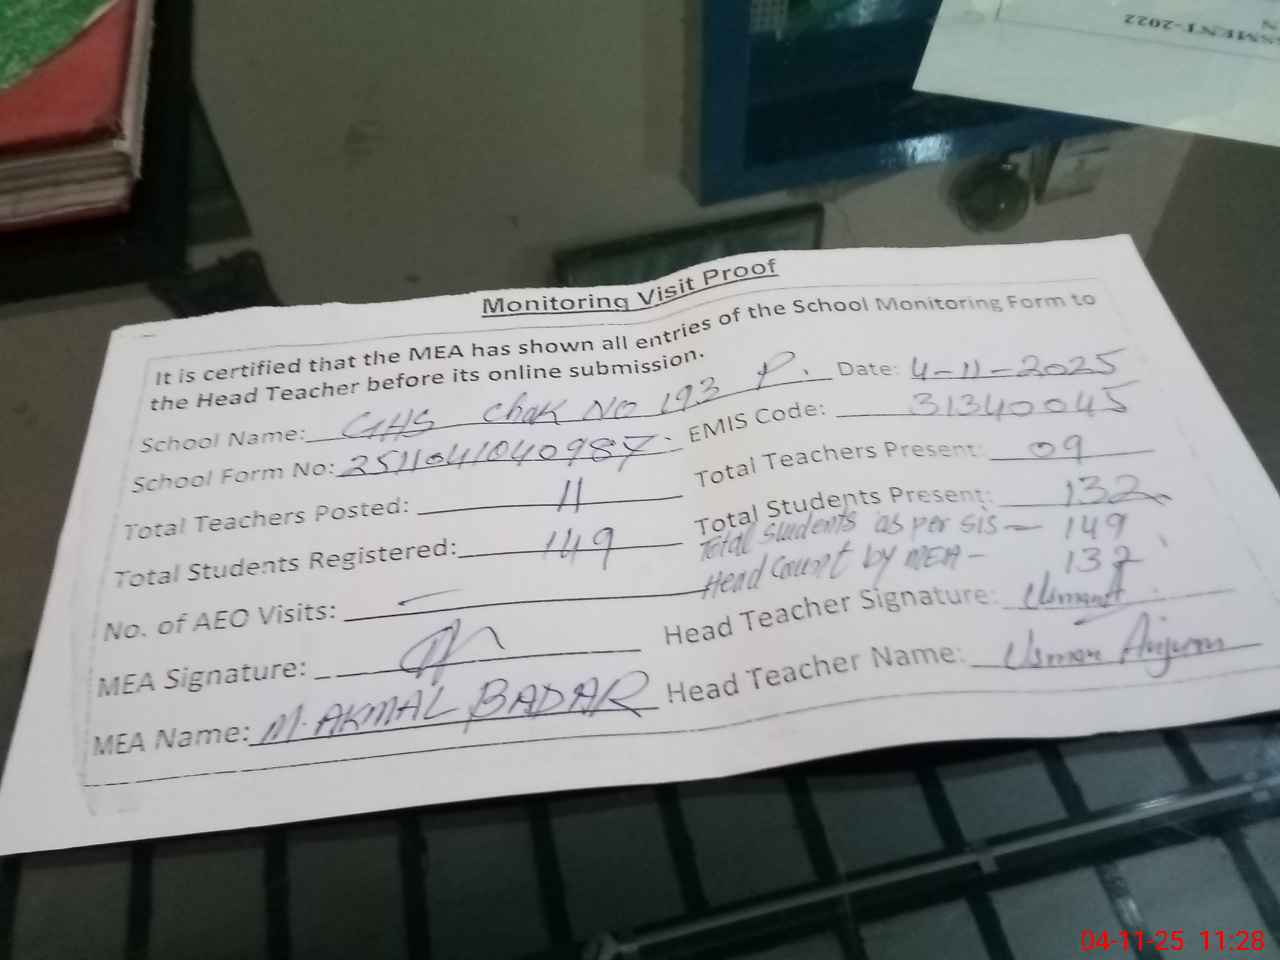 SSMENT-2022
N
Monitoring Visit Proof
It is certified that the MEA has shown all entries of the School Monitoring Form to
the Head Teacher before its online submission.
School Name: GHS Chak No 193 P. Date: 4-11-2025
School Form No: 2511041040987. EMIS Code: 31340045
Total Teachers Posted: 11 Total Teachers Present: 09
Total Students Registered: 149 Total Students Present: 132
Total Students as per SIS — 149
Head Count by MEA — 132
No. of AEO Visits: —
MEA Signature: Head Teacher Signature:
MEA Name: M. AKMAL BADAR Head Teacher Name: Usman Anjum
04-11-25 11:28